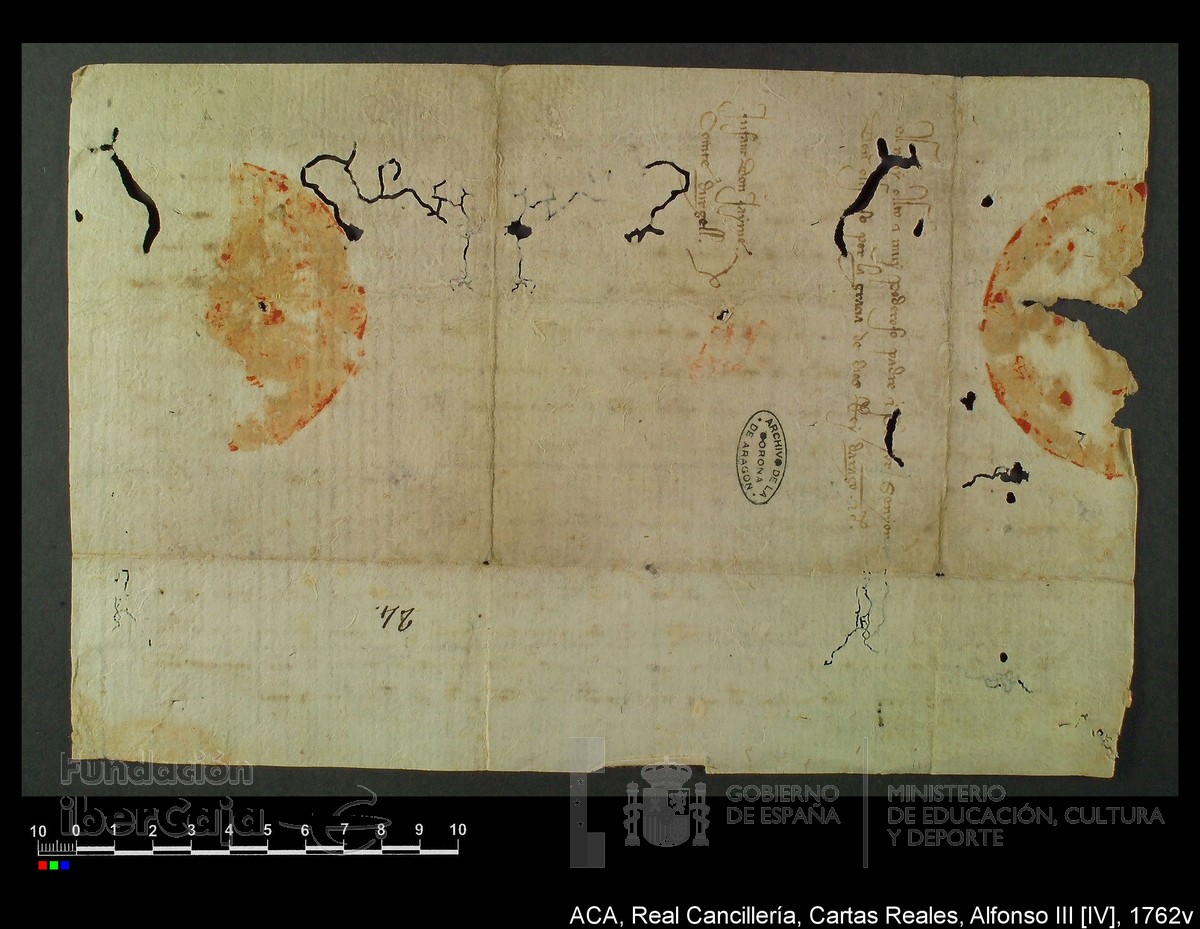 Al muy alto e muy poderoso padre e senyor Senyor
Don Alfonso por la gracia de dios Rey darago etc
Inffante Don Jayme.
Comte durgell.
ARCHIVO DE LA
CORONA
DE ARAGON
24.
Fundación
iberCaja
GOBIERNO
DE ESPAÑA
MINISTERIO
DE EDUCACIÓN, CULTURA
Y DEPORTE
10 0 1 2 3 4 5 6 7 8 9 10
ACA, Real Cancillería, Cartas Reales, Alfonso III [IV], 1762v